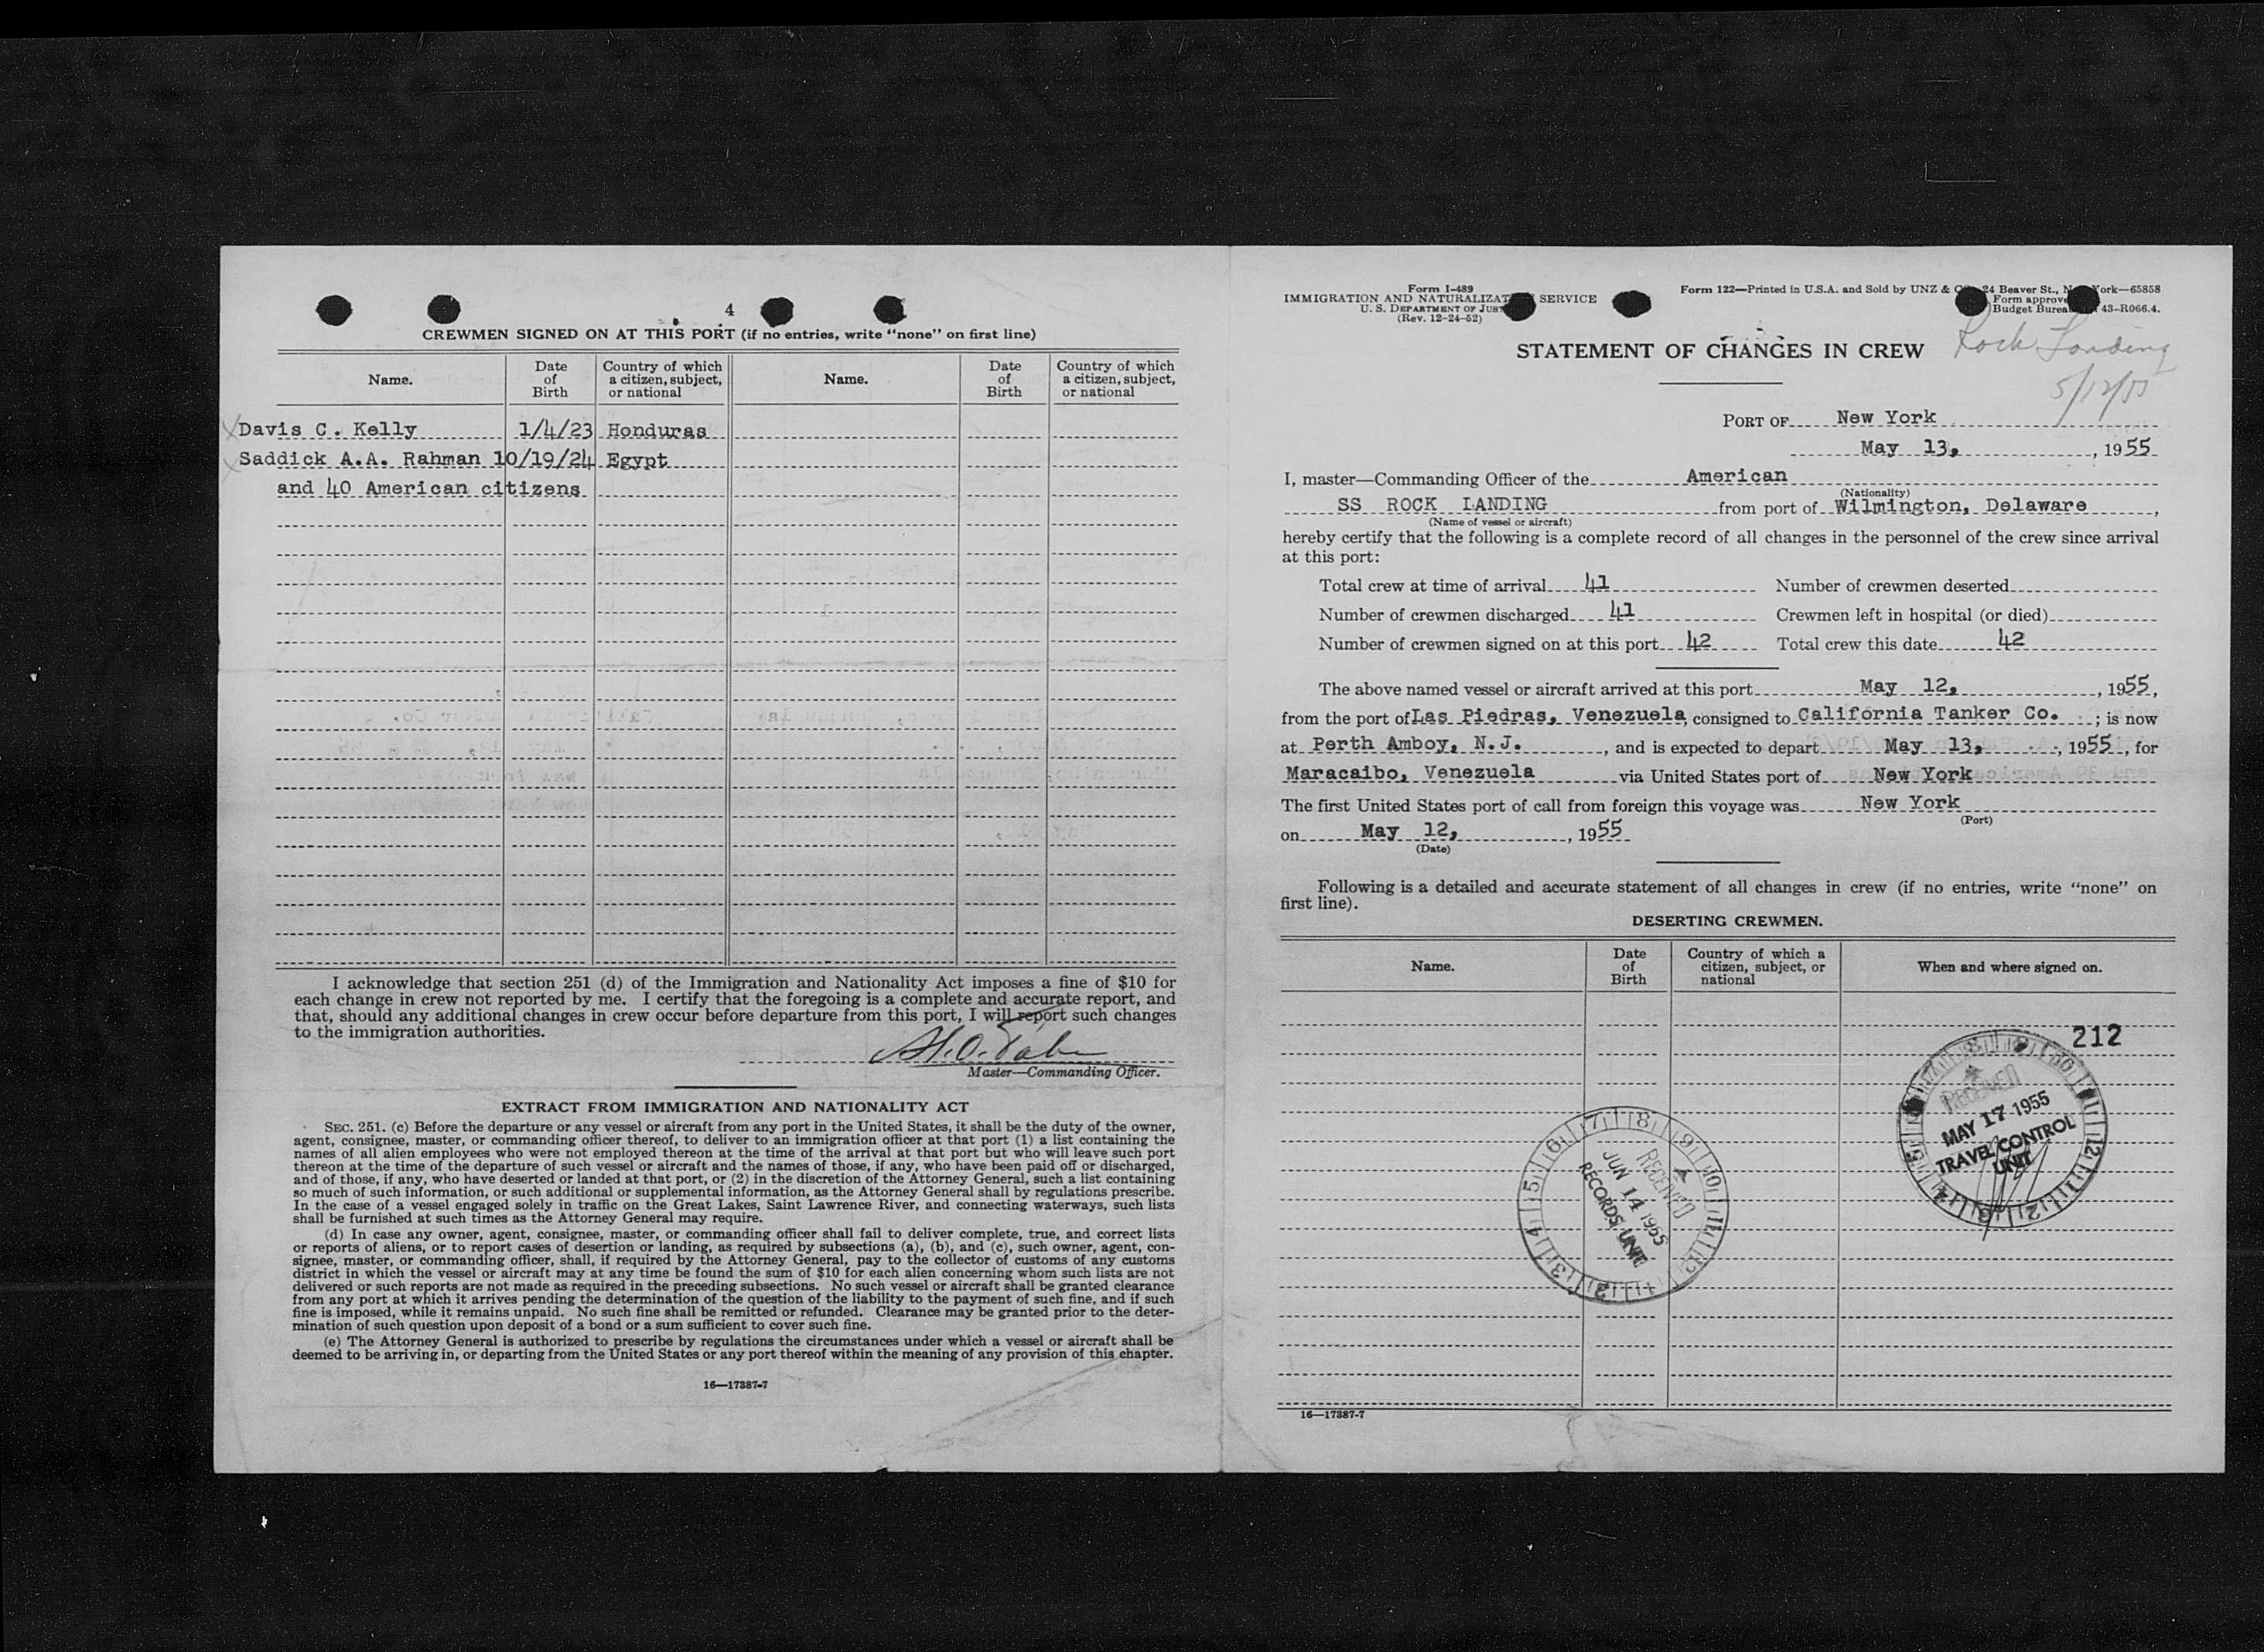 4
CREWMEN SIGNED ON AT THIS PORT (if no entries, write “none” on first line)
Name. Date of Birth Country of which a citizen, subject, or national Name. Date of Birth Country of which a citizen, subject, or national
Davis C. Kelly 1/4/23 Honduras
Saddick A.A. Rahman 10/19/24 Egypt
and 40 American citizens
I acknowledge that section 251 (d) of the Immigration and Nationality Act imposes a fine of $10 for
each change in crew not reported by me. I certify that the foregoing is a complete and accurate report, and
that, should any additional changes in crew occur before departure from this port, I will report such changes
to the immigration authorities.
Master—Commanding Officer.
EXTRACT FROM IMMIGRATION AND NATIONALITY ACT
SEC. 251. (c) Before the departure or any vessel or aircraft from any port in the United States, it shall be the duty of the owner,
agent, consignee, master, or commanding officer thereof, to deliver to an immigration officer at that port (1) a list containing the
names of all alien employees who were not employed thereon at the time of the arrival at that port but who will leave such port
thereon at the time of the departure of such vessel or aircraft and the names of those, if any, who have been paid off or discharged,
and of those, if any, who have deserted or landed at that port, or (2) in the discretion of the Attorney General, such a list containing
so much of such information, or such additional or supplemental information, as the Attorney General shall by regulations prescribe.
In the case of a vessel engaged solely in traffic on the Great Lakes, Saint Lawrence River, and connecting waterways, such lists
shall be furnished at such times as the Attorney General may require.
(d) In case any owner, agent, consignee, master, or commanding officer shall fail to deliver complete, true, and correct lists
or reports of aliens, or to report cases of desertion or landing, as required by subsections (a), (b), and (c), such owner, agent, con-
signee, master, or commanding officer, shall, if required by the Attorney General, pay to the collector of customs of any customs
district in which the vessel or aircraft may at any time be found the sum of $10 for each alien concerning whom such lists are not
delivered or such reports are not made as required in the preceding subsections. No such vessel or aircraft shall be granted clearance
from any port at which it arrives pending the determination of the question of the liability to the payment of such fine, and if such
fine is imposed, while it remains unpaid. No such fine shall be remitted or refunded. Clearance may be granted prior to the deter-
mination of such question upon deposit of a bond or a sum sufficient to cover such fine.
(e) The Attorney General is authorized to prescribe by regulations the circumstances under which a vessel or aircraft shall be
deemed to be arriving in, or departing from the United States or any port thereof within the meaning of any provision of this chapter.
16—17387-7
Form I-489
IMMIGRATION AND NATURALIZAT SERVICE
U. S. DEPARTMENT OF JUS
(Rev. 12-24-52)
Form 122—Printed in U.S.A. and Sold by UNZ & 24 Beaver St., N ork—65858
Form approve
Budget Burea 43-R066.4.
Rock Landing
5/12/55
STATEMENT OF CHANGES IN CREW
PORT OF New York
May 13, , 1955
I, master—Commanding Officer of the American
(Nationality)
SS ROCK LANDING from port of Wilmington, Delaware ,
(Name of vessel or aircraft)
hereby certify that the following is a complete record of all changes in the personnel of the crew since arrival
at this port:
Total crew at time of arrival 41 Number of crewmen deserted
Number of crewmen discharged 41 Crewmen left in hospital (or died)
Number of crewmen signed on at this port 42 Total crew this date 42
The above named vessel or aircraft arrived at this port May 12, , 1955,
from the port of Las Piedras, Venezuela, consigned to California Tanker Co. ; is now
at Perth Amboy, N.J. , and is expected to depart May 13, , 1955, for
Maracaibo, Venezuela via United States port of New York
The first United States port of call from foreign this voyage was New York
(Port)
on May 12, , 1955
(Date)
Following is a detailed and accurate statement of all changes in crew (if no entries, write “none” on
first line).
DESERTING CREWMEN.
Name. Date of Birth Country of which a citizen, subject, or national When and where signed on.
212
RECEIVED
MAY 17 1955
TRAVEL CONTROL
UNIT
RECEIVED
JUN 14 1955
RECORDS UNIT
16—17387-7